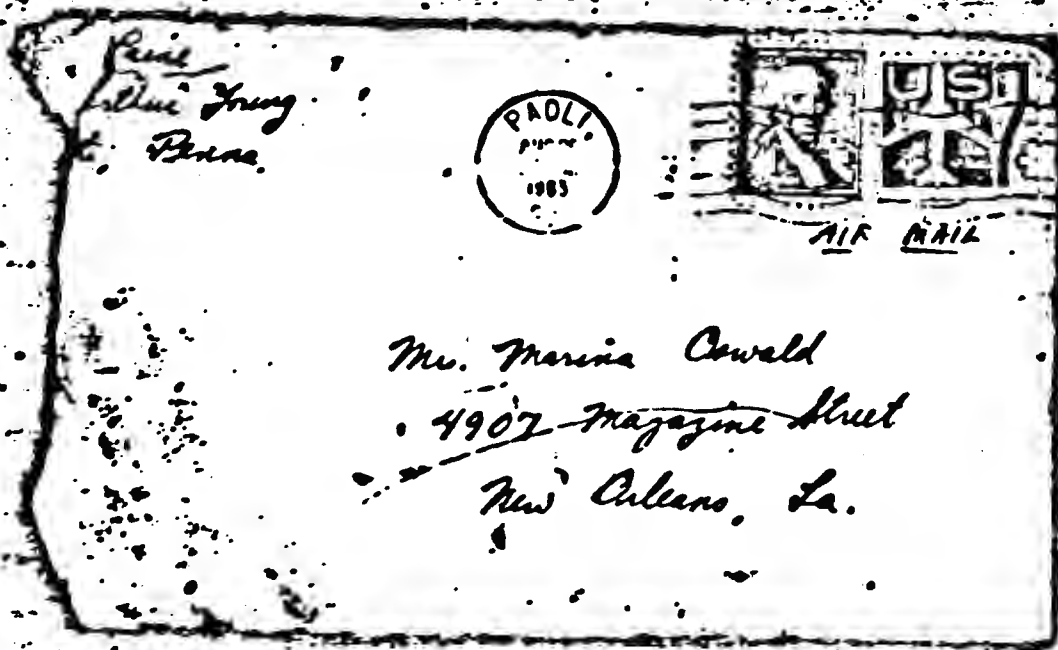 Paine
Arthur Young
Penna.
PAOLI,
1963
US
7
AIR MAIL
Mrs. Marina Oswald
4907 Magazine Street
New Orleans, La.